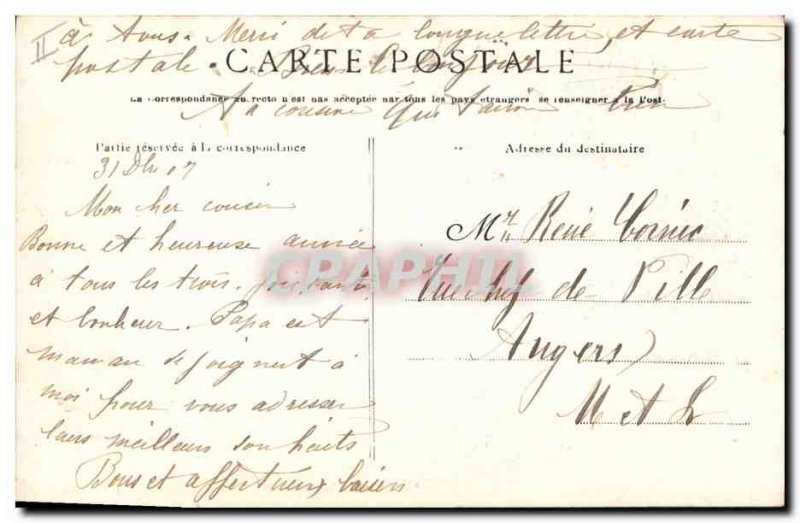 II
à tous. Merci de ta longue lettre, et carte
CARTE POSTALE
postale.
La Correspondance au recto n'est pas acceptée par tous les pays étrangers se renseigner à la Post
Ta cousine qui t'aime bien
Partie réservée à la correspondance
31 Dbre 07
Mon her cousin
Bonne et heureuse année
à tous les trois. Joie santé
et bonheur. Papa et
maman se joignent à
moi pour vous adresser
leurs meilleurs souhaits
Bons et affectueux baisers
Adresse du destinataire
Mr René Cornic
Rue chef de Ville
Angers
M et L
CPAPHIL